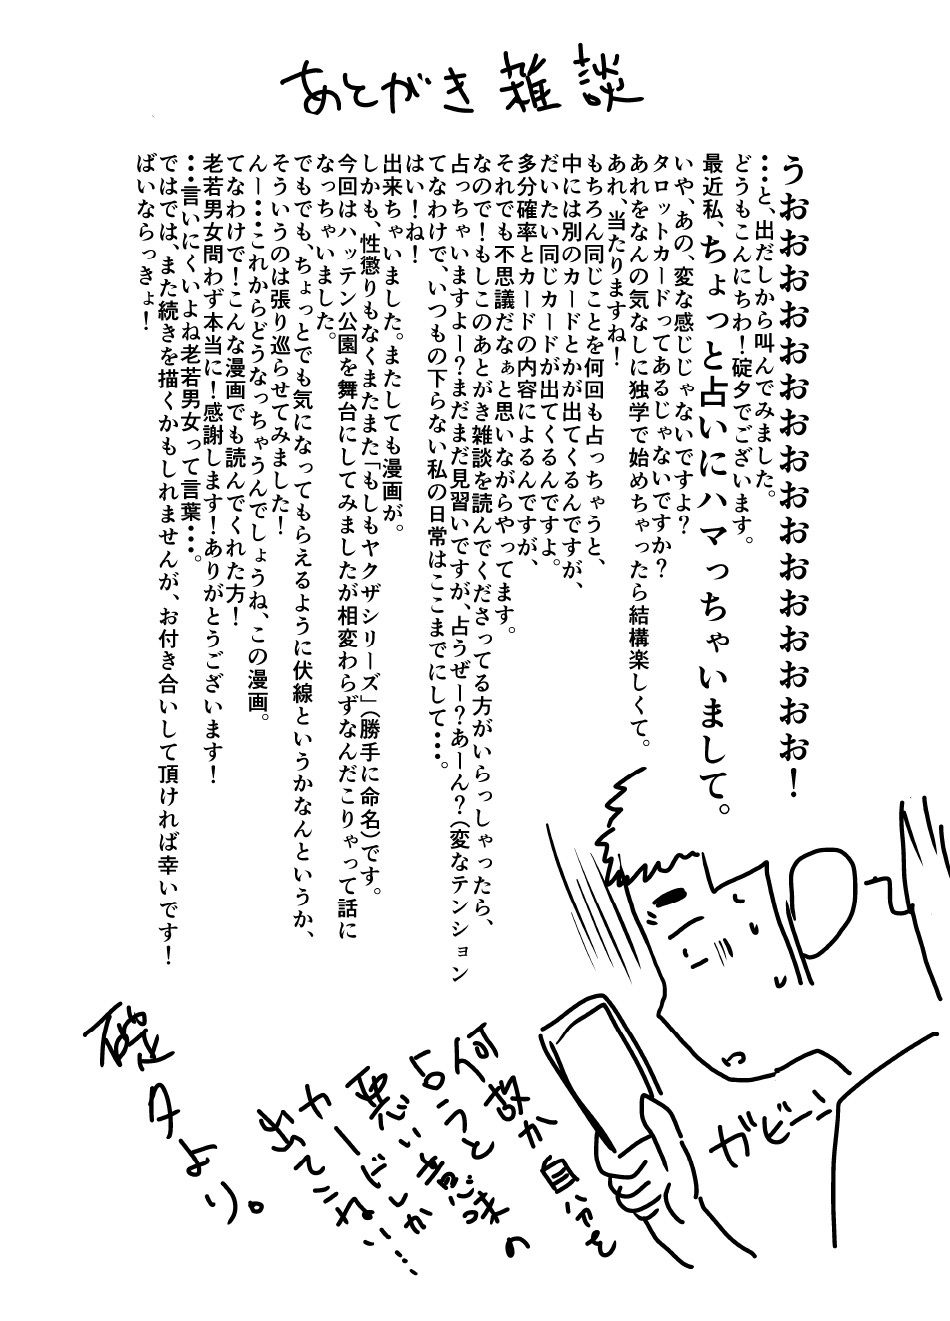 あとがき雑談
うおおおおおおおおおおおおおおおお！
・・・と、出だしから叫んでみました。
どうもこんにちわ！碇夕でございます。
最近私、ちょっと占いにハマっちゃいまして。
いや、あの、変な感じじゃないですよ？
タロットカードってあるじゃないですか？
あれをなんの気なしに独学で始めちゃったら結構楽しくて。
あれ、当たりますね！
もちろん同じことを何回も占っちゃうと、
中には別のカードとかが出てくるんですが、
だいたい同じカードが出てくるんですよ。
多分確率とカードの内容によるんですが、
それでも不思議だなぁと思いながらやってます。
なので！もしこのあとがき雑談を読んでくださってる方がいらっしゃったら、
占っちゃいますよー？まだまだ見習いですが、占うぜー？あーん？（変なテンション
てなわけで、いつもの下らない私の日常はここまでにして・・・。
はい！ね！
出来ちゃいました。またしても漫画が。
しかも、性懲りもなくまたまた「もしもヤクザシリーズ」（勝手に命名）です。
今回はハッテン公園を舞台にしてみましたが相変わらずなんだこりゃって話に
なっちゃいました。
でもでも、ちょっとでも気になってもらえるように伏線というかなんというか、
そういうのは張り巡らせてみました！
んー・・・これからどうなっちゃうんでしょうね、この漫画。
てなわけで！こんな漫画でも読んでくれた方！
老若男女問わず本当に！感謝します！ありがとうございます！
・・・言いにくいよね老若男女って言葉・・・。
ではでは、また続きを描くかもしれませんが、お付き合いして頂ければ幸いです！
ばいならっきょ！
ガビーン
何故か自分を
占うと
悪い意味の
カードしか
出てこねい…
碇夕より。